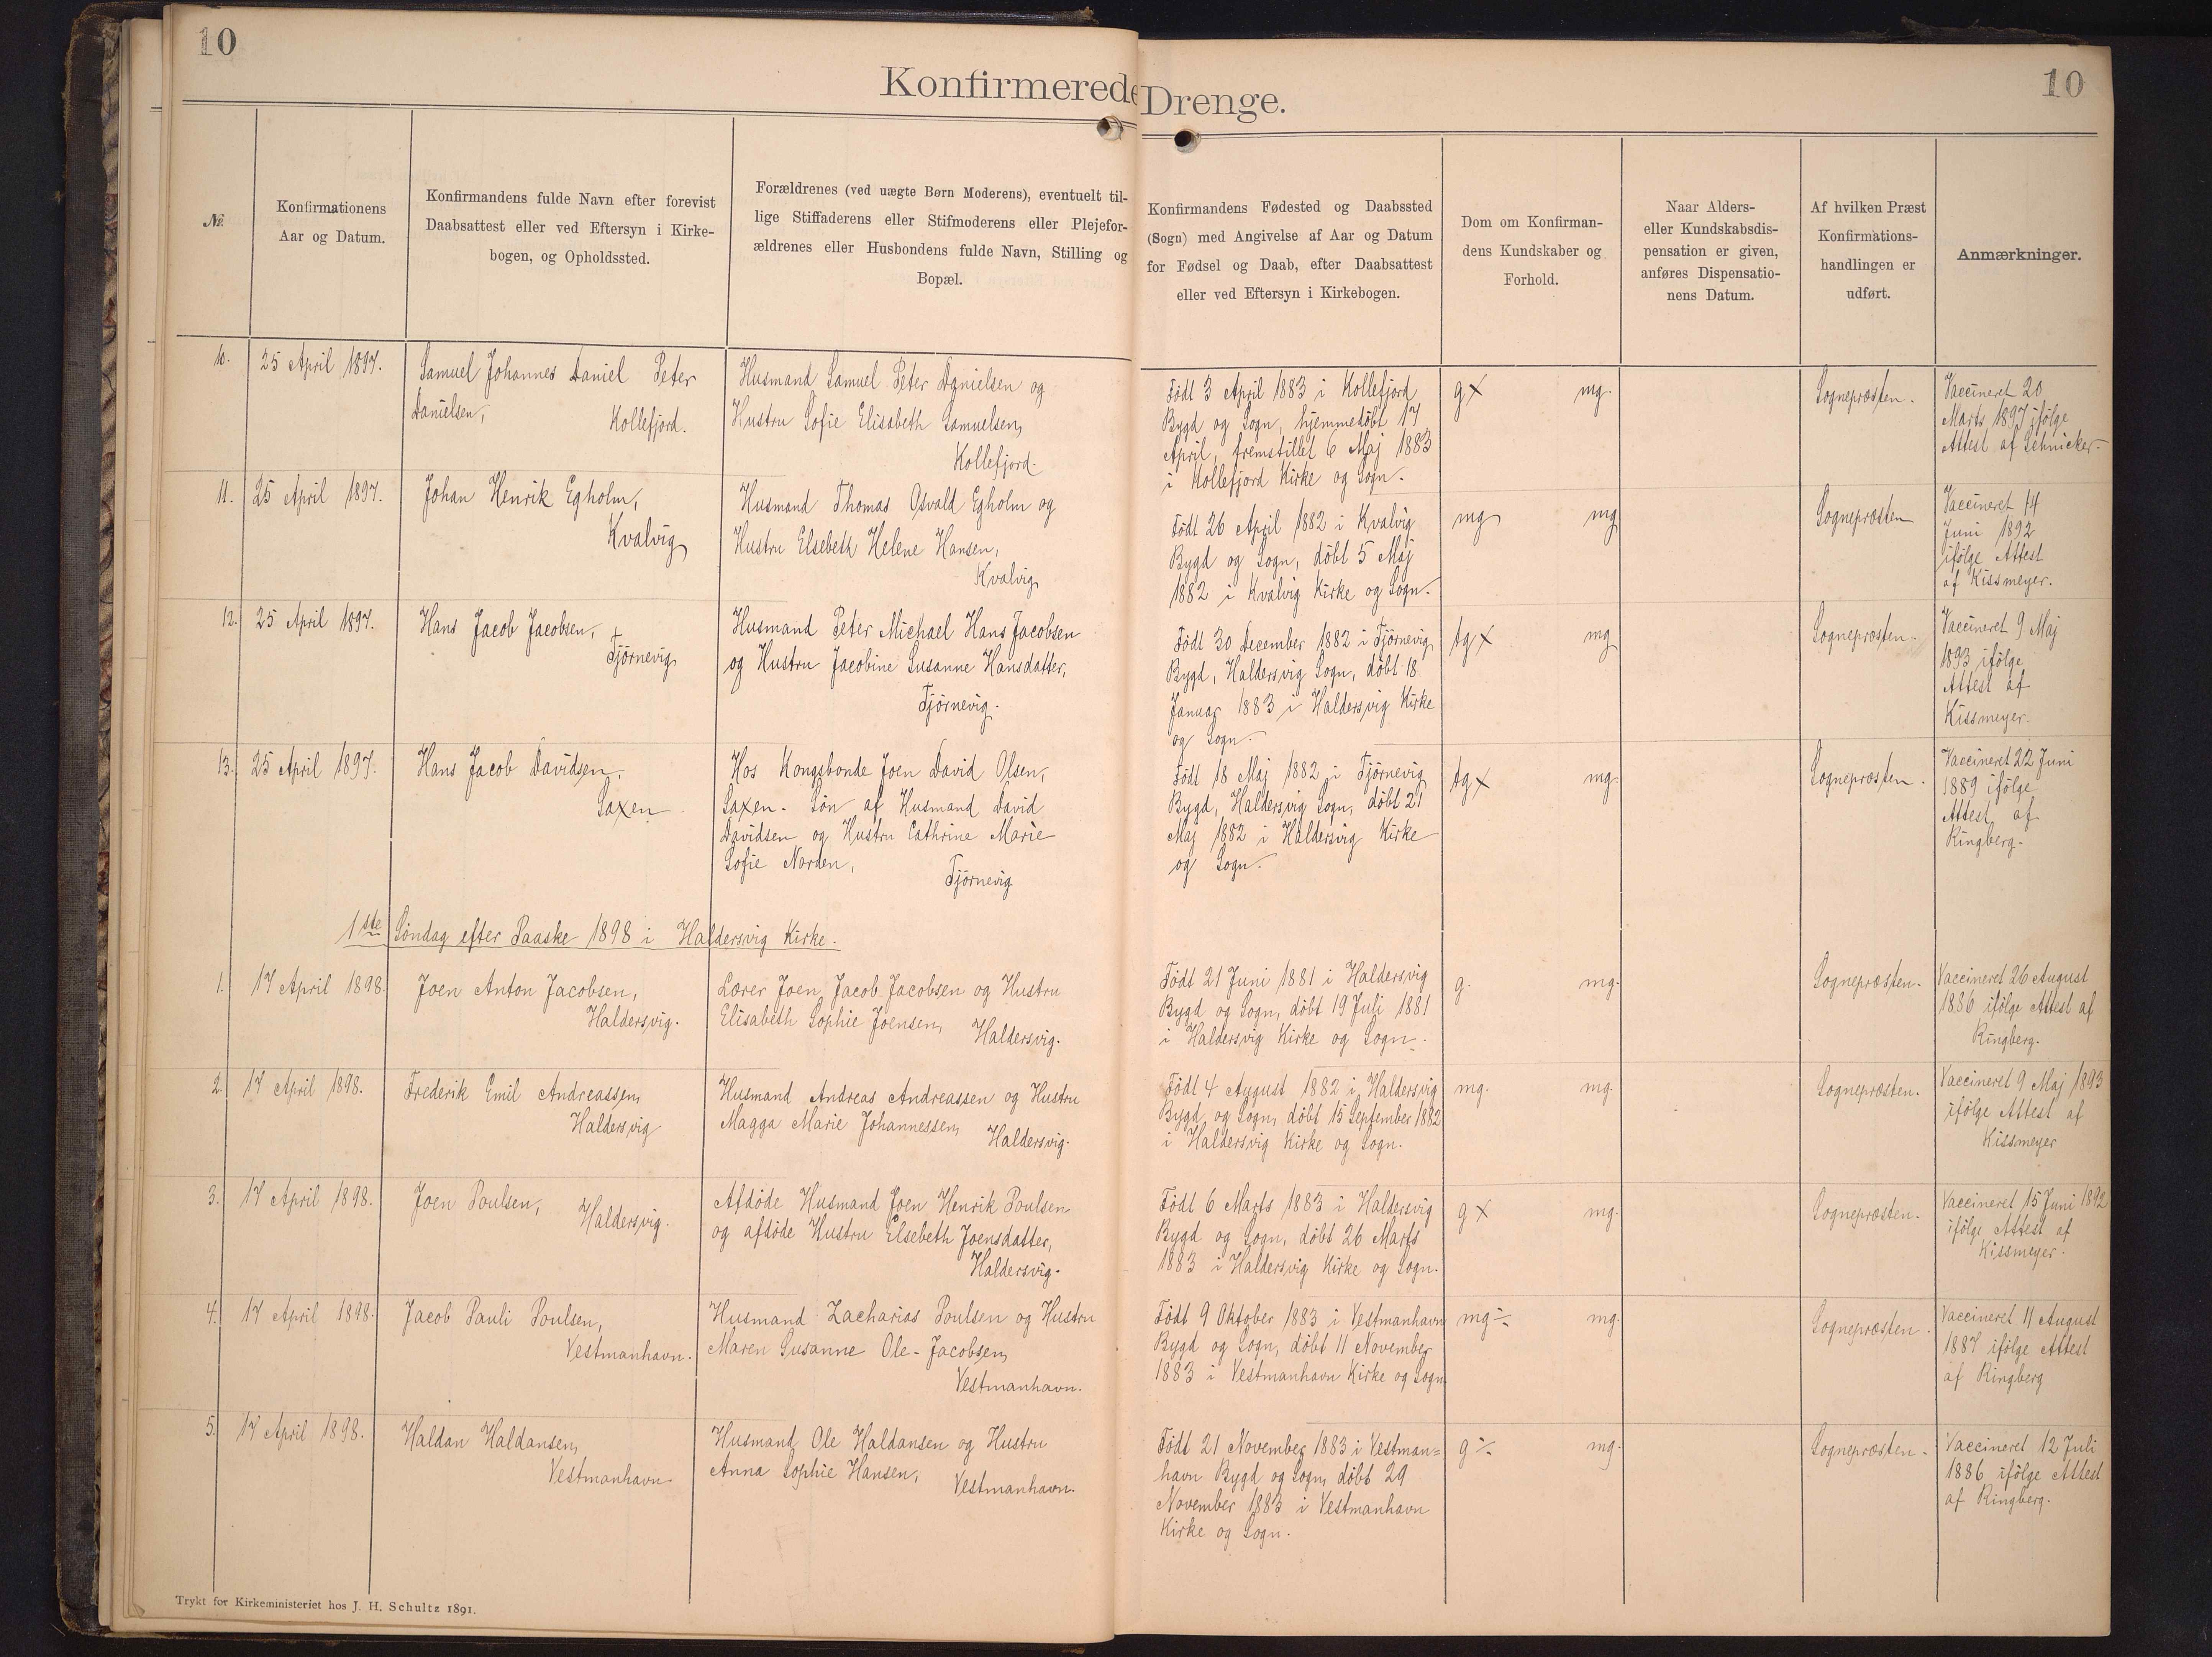 10
10
Konfirmerede Drenge.
№
Konfirmationens
Aar og Datum.
Konfirmandens fulde Navn efter forevist
Daabsattest eller ved Eftersyn i Kirke-
bogen, og Opholdssted.
Forældrenes (ved uægte Børn Moderens), eventuelt til-
lige Stiffaderens eller Stifmoderens eller Plejefor-
ældrenes eller Husbondens fulde Navn, Stilling og
Bopæl.
Konfirmandens Fødested og Daabssted
(Sogn) med Angivelse af Aar og Datum
for Fødsel og Daab, efter Daabsattest
eller ved Eftersyn i Kirkebogen.
Dom om Konfirman-
dens Kundskaber og
Forhold.
Naar Alders-
eller Kundskabsdis-
pensation er given,
anføres Dispensatio-
nens Datum.
Af hvilken Præst
Konfirmations-
handlingen er
udført.
Anmærkninger.
10.
25 April 1897.
Samuel Johannes Daniel Peter
Danielsen,
Kollefjord.
Husmand Samuel Peter Danielsen og
Hustru Sofie Elisabeth Samuelsen,
Kollefjord.
Født 3 April 1883 i Kollefjord
Bygd og Sogn, hjemmedöbt 17
April, fremstillet 6 Maj 1883
i Kollefjord Kirke og Sogn.
g x mg.
Sognepræsten.
Vaccineret 20
Marts 1897 ifölge
Attest af Schnicker.
11.
25 April 1897.
Johan Henrik Egholm,
Kvalvig
Husmand Thomas Osvald Egholm og
Hustru Elsebeth Helene Hansen,
Kvalvig
Født 26 April 1882 i Kvalvig
Bygd og Sogn, döbt 5 Maj
1882 i Kvalvig Kirke og Sogn.
mg mg
Sognepræsten
Vaccineret 14
Juni 1892
ifölge Attest
af Kissmeyer.
12.
25 April 1897.
Hans Jacob Jacobsen,
Tjörnevig
Husmand Peter Michael Hans Jacobsen
og Hustru Jacobine Susanne Hansdatter,
Tjörnevig.
Født 30 December 1882 i Tjörnevig
Bygd, Haldersvig Sogn, döbt 18
Januar 1883 i Haldersvig Kirke
og Sogn.
tg x mg
Sognepræsten.
Vaccineret 9 Maj
1893 ifölge
Attest af
Kissmeyer.
13.
25 April 1897.
Hans Jacob Davidsen,
Saxen
Hos Kongsbonde Joen David Olsen,
Saxen. Sön af Husmand David
Davidsen og Hustru Cathrine Marie
Sofie Norden,
Tjörnevig
Født 18 Maj 1882 i Tjörnevig
Bygd, Haldersvig Sogn, döbt 21
Maj 1882 i Haldersvig Kirke
og Sogn.
tg x mg.
Sognepræsten.
Vaccineret 22 Juni
1889 ifölge
Attest af
Ringberg.
1ste Söndag efter Paaske 1898 i Haldersvig Kirke.
1.
17 April 1898.
Joen Anton Jacobsen,
Haldersvig.
Lærer Joen Jacob Jacobsen og Hustru
Elisabeth Sophie Joensen,
Haldersvig.
Født 21 Juni 1881 i Haldersvig
Bygd og Sogn, döbt 19 Juli 1881
i Haldersvig Kirke og Sogn.
g. mg.
Sognepræsten.
Vaccineret 26 August
1886 ifölge Attest af
Ringberg.
2.
17 April 1898.
Frederik Emil Andreassen,
Haldersvig
Husmand Andreas Andreassen og Hustru
Magga Marie Johannessen,
Haldersvig.
Født 4 August 1882 i Haldersvig
Bygd og Sogn, döbt 15 September 1882
i Haldersvig Kirke og Sogn.
mg. mg.
Sognepræsten.
Vaccineret 9 Maj 1893
ifölge Attest af
Kissmeyer
3.
17 April 1898.
Joen Poulsen,
Haldersvig.
Afdöde Husmand Joen Henrik Poulsen
og afdöde Hustru Elsebeth Joensdatter,
Haldersvig.
Født 6 Marts 1883 i Haldersvig
Bygd og Sogn, döbt 26 Marts
1883 i Haldersvig Kirke og Sogn.
g x mg.
Sognepræsten.
Vaccineret 15 Juni 1892
ifölge Attest af
Kissmeyer.
4.
17 April 1898.
Jacob Pauli Poulsen,
Vestmanhavn.
Husmand Zacharias Poulsen og Hustru
Maren Susanne Ole-Jacobsen,
Vestmanhavn.
Født 9 Oktober 1883 i Vestmanhavn
Bygd og Sogn, döbt 11 November
1883 i Vestmanhavn Kirke og Sogn
mg ÷ mg.
Sognepræsten.
Vaccineret 11 August
1887 ifölge Attest
af Ringberg
5.
17 April 1898.
Haldan Haldansen,
Vestmanhavn.
Husmand Ole Haldansen og Hustru
Anna Sophie Hansen,
Vestmanhavn.
Født 21 November 1883 i Vestman=
havn Bygd og Sogn, döbt 29
November 1883 i Vestmanhavn
Kirke og Sogn.
g ÷ mg.
Sognepræsten.
Vaccineret 12 Juli
1886 ifölge Attest
af Ringberg.
Trykt for Kirkeministeriet hos J. H. Schultz 1891.